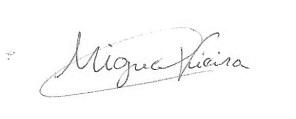 Miguel Vieira